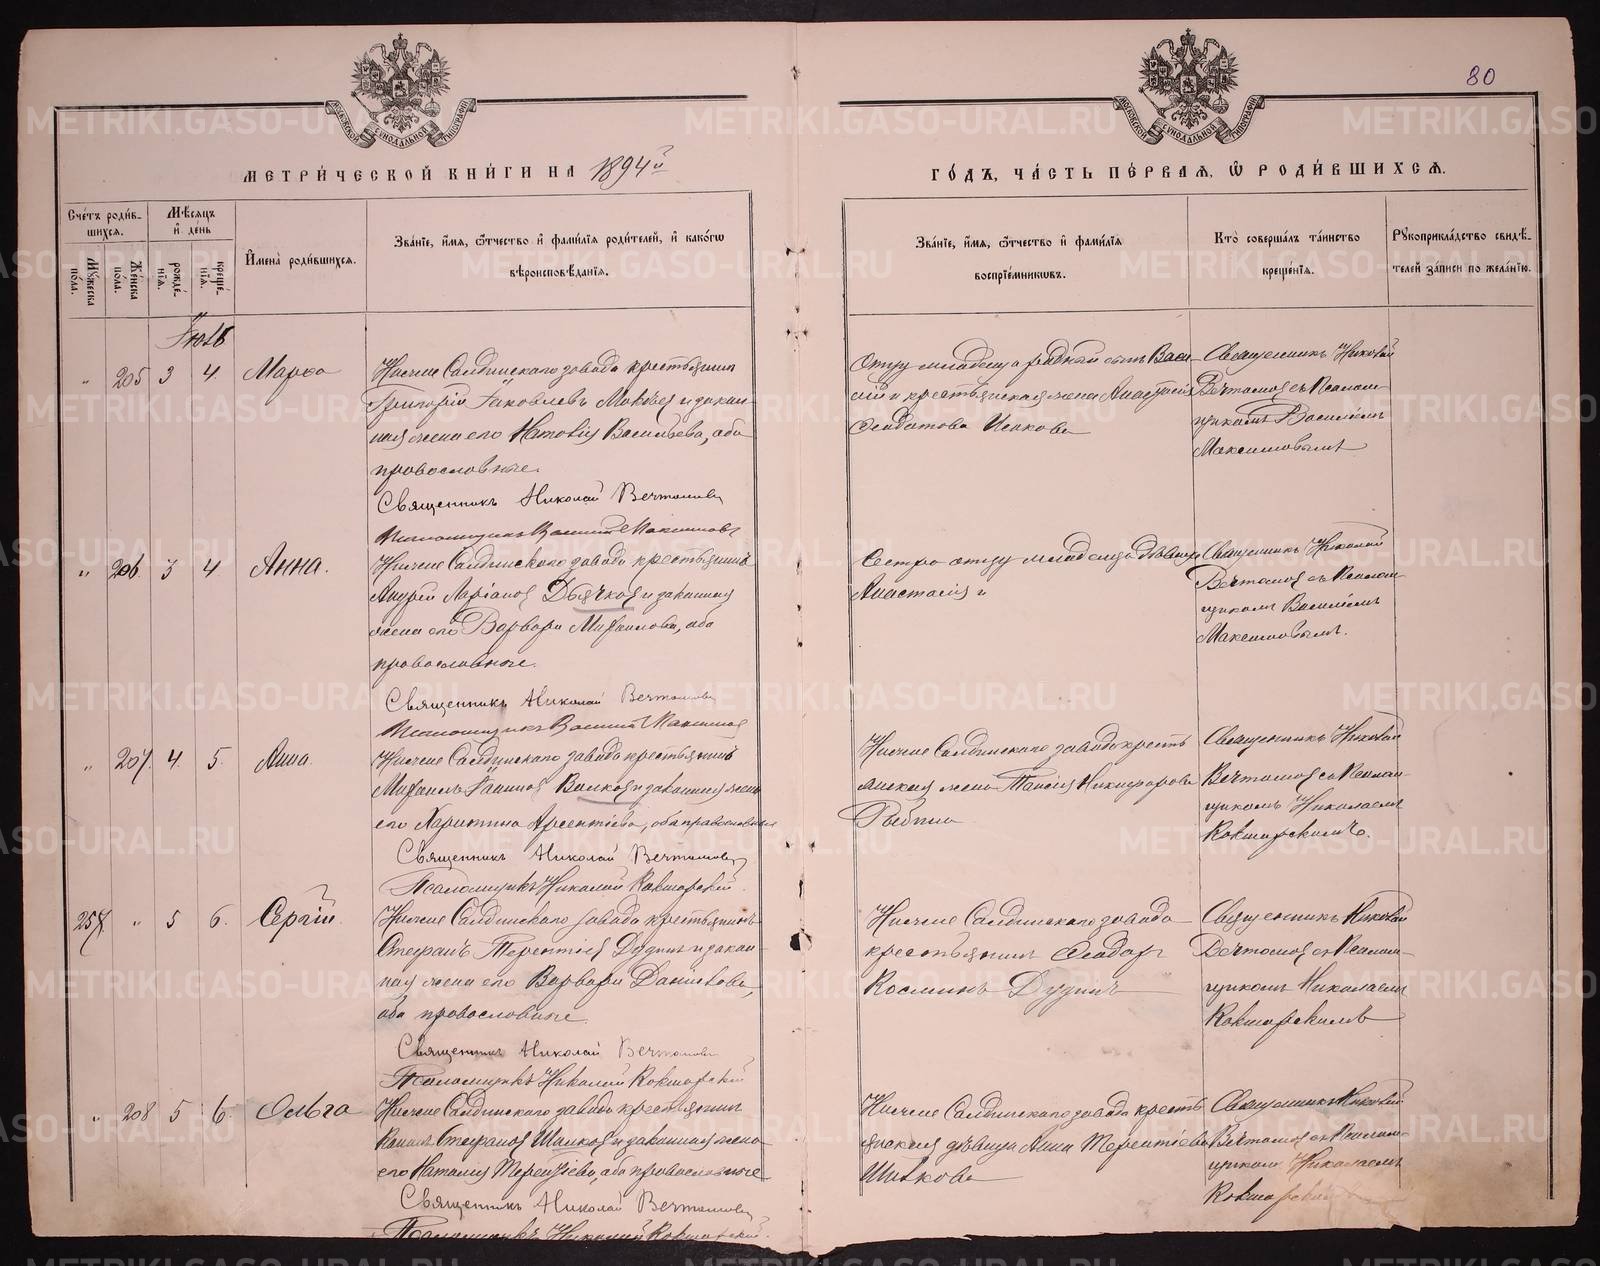 80
МОСКОВСКОЙ СѴНОДАЛЬНОЙ ТИПОГРАФІИ
МОСКОВСКОЙ СѴНОДАЛЬНОЙ ТИПОГРАФІИ
МЕТРИ́ЧЕСКОЙ КНИ́ГИ НА 1894й
ГО́ДЪ, ЧА́СТЬ ПЕ́РВАЯ, Ѽ РОДИ́ВШИХСѦ.
Сче́тъ роди́в-
шихсѧ.
Мꙋ́жеска по́ла.
Же́нска по́ла.
Мѣ́сѧцъ
и҆ де́нь
рожде́-
нїѧ.
креще́-
нїѧ.
И҆мена̀ роди́вшихсѧ.
Зва́нїе, и҆́мѧ, ѻ҆́тчество и҆ фами́лїѧ роди́телей, и҆ како́гѡ
вѣроисповѣ́данїѧ.
Зва́нїе, и҆́мѧ, ѻ҆́тчество и҆ фами́лїѧ
воспрїе́мникѡвъ.
Кто̀ соверша́лъ та́инство
креще́нїѧ.
Рꙋкоприкла́дство свидѣ́-
телей за́писи по жела́нїю.
Іюль
" 205 3 4. Марѳа
Нижне Салдинскаго завода крестьянинъ
Григорій Іаковлевъ и закон-
ная жена его Васильева, оба
православные.
Священникъ Николай Вечтомовъ
Псаломщикъ Василій Максимовъ
Священникъ Николай
Вечтомовъ съ Псалом-
щикомъ Василіемъ
Максимовымъ
" 206. 3 4 Анна.
Нижне Салдинскаго завода крестьянинъ
Андрей Дьячковъ и законная
жена его Варвара Михаилова, оба
православные.
Священникъ Николай Вечтомовъ
Псаломщикъ Василій Максимовъ
Сестра отцу младенца дѣвица
Анастасія
Священникъ Николай
Вечтомовъ съ Псалом-
щикомъ Василіемъ
Максимовымъ.
" 207. 4. 5. Анна.
Нижне Салдинскаго завода крестьянинъ
Михаилъ Волковъ и законная жена
его Харитина Арсентіева, оба православные
Священникъ Николай Вечтомовъ
Псаломщикъ Николай Кокшарскій.
Нижне Салдинскаго завода кресть
янская жена Таисія Никифорова
Священникъ Николай
Вечтомовъ съ Псалом-
щикомъ Николаемъ
Кокшарскимъ.
257. " 5 6. Сергій.
Нижне Салдинскаго завода крестьянинъ
Стефанъ Терентіевъ Дудинъ и закон-
ная жена его Варвара Данилова,
оба православные
Священникъ Николай Вечтомовъ
Псаломщикъ Николай Кокшарскій
Нижне Салдинскаго завода
крестьянинъ Ѳеодоръ
Косминъ Дудинъ
Священникъ Николай
Вечтомовъ съ Псалом-
щикомъ Николаемъ
Кокшарскимъ
" 208 5 6. Ольга
Нижне Салдинскаго завода крестьянинъ
Стефановъ и законная жена
его Наталія Терентіева, оба православные
Священникъ Николай Вечтомовъ
Псаломщикъ Николай Кокшарскій.
Нижне Салдинскаго завода кресть
янская дѣвица Анна Терентіева
Шивкова
Священникъ Николай
Вечтомовъ съ Псалом-
щикомъ Николаемъ
Кокшарскимъ
METRIKI.GASO-URAL.RU